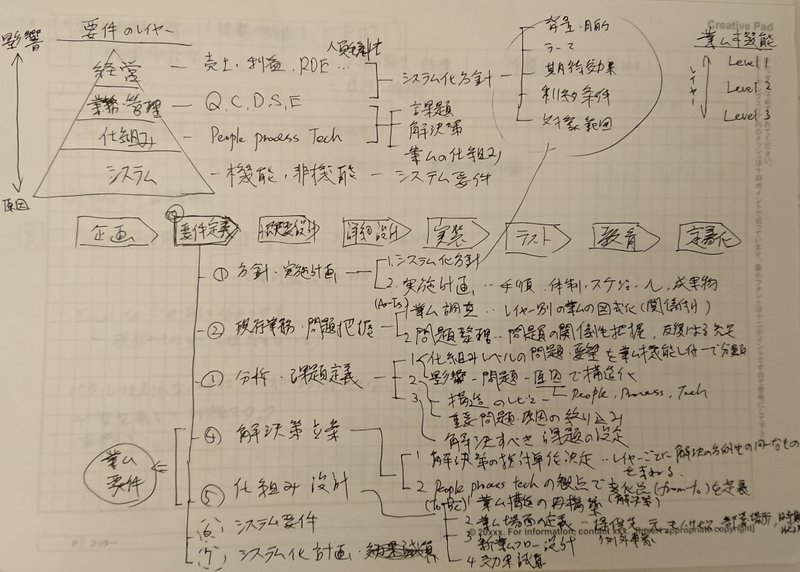 影響
要件のレイヤー
人員生産性
背景・目的
テーマ
期待効果
制約条件
対象範囲
Creative Pad
業ム機能
レイヤー
Level 1
Level 2
Level 3
経営 — 売上, 利益, ROE …
システム化方針
業務・管理 — Q, C, D, S, E
課題
解決策
仕組み — People process Tech
業ムの仕組み
システム — 機能, 非機能 — システム要件
原因
企画
要件定義
概要設計
詳細設計
実装
テスト
教育
定着化
① 方針・実施計画
1. システム化方針
2. 実施計画 … 手順, 体制・スケジュール, 成果物
(As-Is)
② 現行業務・問題把握
1 業ム調査 … レイヤー別の業ムの図式化(関係付け)
2 問題整理 … 問題の関係性を把握,
③ 分析・課題定義
1 仕組みレベルの問題・要望を業ム機能レイヤーで分類
2 影響－問題－原因で構造化
3 構造のレビュー
People, Process, Tech
重要問題・原因の絞り込み
解決すべき課題の設定
④ 解決策立案
1 解決策の検討単位決定 … レイヤーごとに解決の方向性の同一なものをまとめる.
2 People process techの観点で変化点(from-to)を定義
(解決策)
業ム要件
⑤ 仕組み設計
(To-Be)
1 業ム構造の再構築
2 業ム場面の定義
3 新業ムフロー設計
例外業務
4 効果試算
⑥ システム要件
⑦ システム化計画・効果試算
©20xxx. For information, contact xxx.
appropriate copyright